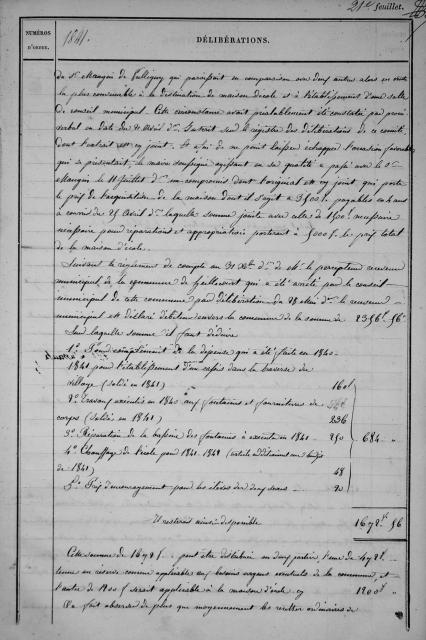 21e feuillet.
NUMÉROS
D'ORDRE.
1841.
DÉLIBÉRATIONS.
du Sr Mangin de Pulligny qui paraissait en comparaison aux deux autres alors en vente
la plus convenable à la destination de maison d'école et à l'établissement d'une salle
de conseil municipal. Cette circonstance avait préalablement été constatée par procès
verbal en date du avril dr. inscrit sur le registre des délibérations de ce comité
dont l'extrait est cy joint. Et afin de ne point laisser échapper l'occasion favorable
qui se présentait, le maire soussigné agissant en sa qualité a passé avec le Sr
Mangin le 11 juillet dr. un compromis dont l'original est cy joint qui porte
le prix de l'acquisition de la maison dont il s'agit à 3500f. payables en 4 ans
à courir du 25 avril dr. laquelle somme jointe avec celle de 1500f. nécessaire
nécessaire pour réparations et appropriations porterait à 5000f. le prix total
de la maison d'école.
Suivant le règlement de compte au 31 Xbre dr. de Mr. le percepteur receveur
municipal de la commune de qui a été arrêté par le conseil
municipal de cette commune par délibération du mai dr. le receveur
municipal est déclaré débiteur envers la commune de la somme de 2356f 56c
Sur laquelle somme il faut déduire
1o. complément de la dépense qui a été faite en 1840
1841 pour l'établissement d'un cassis dans la traverse du
village (soldé en 1841) 160f
2o. Travaux exécutés en 1840 aux fontaines et fournitures de
corps (soldés en 1841) 236
3o. Réparation de la bassine des fontaines à exécuter en 1841 250 684 "
4o. Chauffage de l'école pour 1841-1842 (article additionnel au budget
de 1841) 48
5o. Prix d'encouragement pour les élèves des deux sexes 20
Il resterait ainsi disponible 1672f 56
Cette somme de 1672f. peut être distribuée en deux parties, l'une de 472f.
tenue en réserve comme applicable aux besoins urgens éventuels de la commune, et
l'autre de 1200f serait applicable à la maison d'école cy 1200f
Il a fait observer de plus que moyennement les recettes ordinaires de